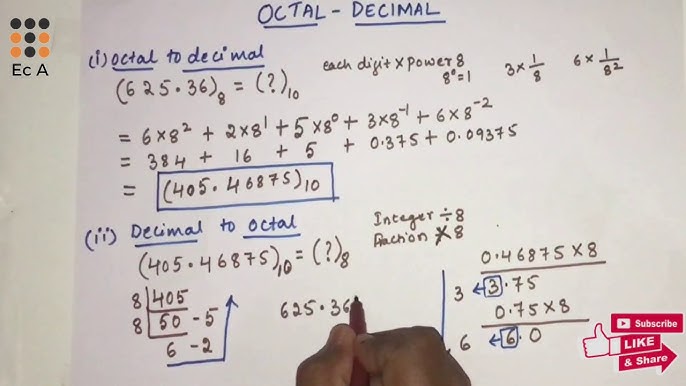 OCTAL - DECIMAL
Ec A
(i) Octal to decimal
each digit × power 8
8⁰=1
3 × 1/8
6 × 1/8²
(625.36)₈ = (?)₁₀
= 6×8² + 2×8¹ + 5×8⁰ + 3×8⁻¹ + 6×8⁻²
= 384 + 16 + 5 + 0.375 + 0.09375
= (405.46875)₁₀
(ii) Decimal to Octal
Integer ÷ 8
Fraction × 8
(405.46875)₁₀ = (?)₈
8 405
8 50 - 5
6 - 2
625.36
0.46875 × 8
3 ← 3.75
0.75 × 8
.6 ← 6.0
Subscribe
LIKE
& Share